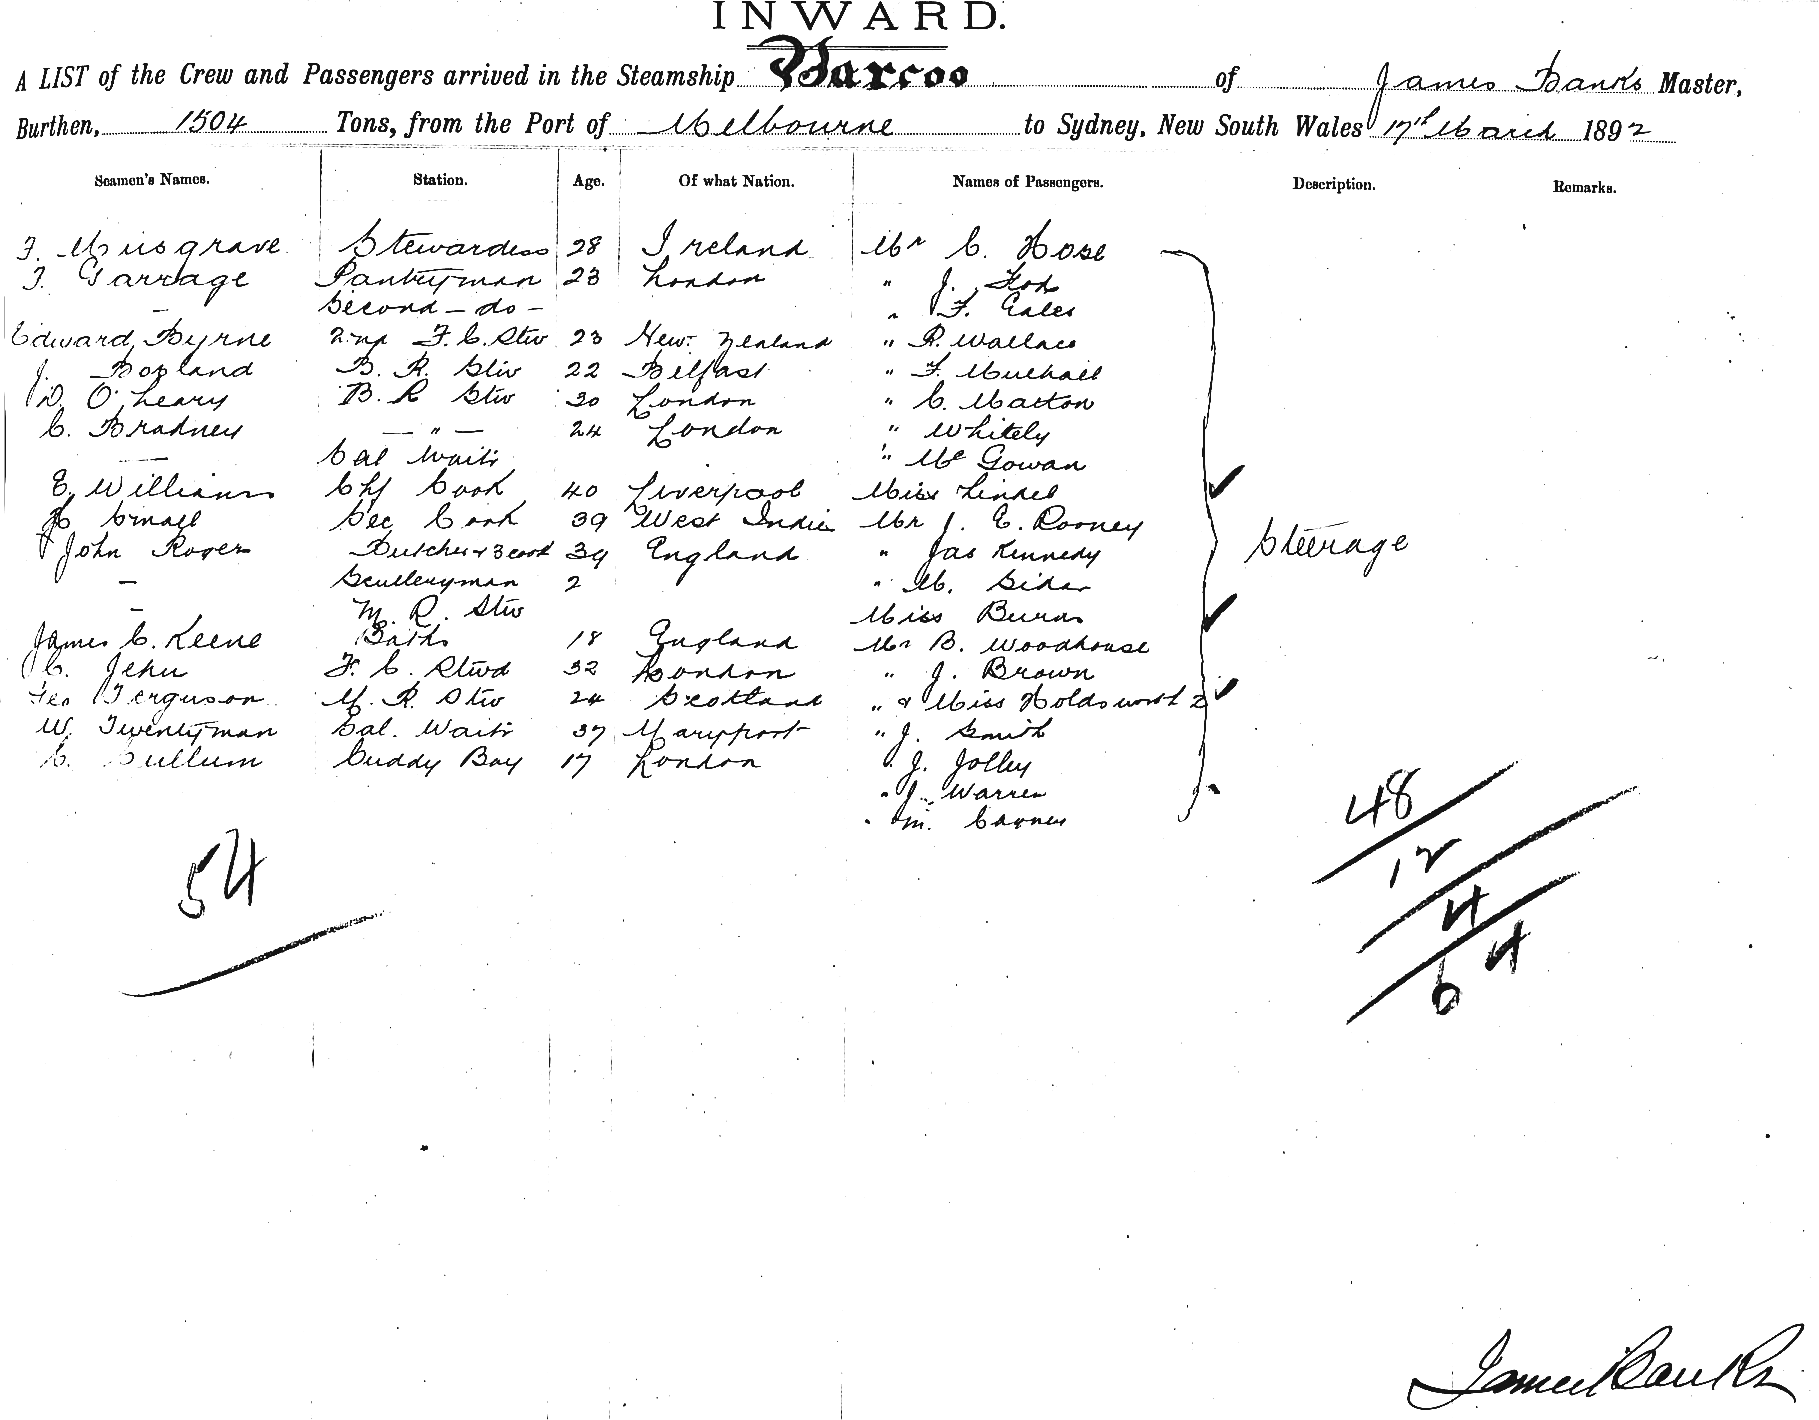 INWARD.
A LIST of the Crew and Passengers arrived in the Steamship Barcoo of James Banks Master,
Burthen, 1504 Tons, from the Port of Melbourne to Sydney, New South Wales 17th March 1892
Seamen's Names. Station. Age. Of what Nation. Names of Passengers. Description. Remarks.
F. Musgrave Stewardess 28 Ireland Mr C. Hose
F. Garrage Pantryman 23 London " J. Fox
Second - do - " F. Eales
Edward Byrne 2nd F. C. Stw 23 New Zealand " R. Wallace
J. Bopland B. R. Stw 22 Belfast " F. Mulhall
D. O'Leary B. R Stw 30 London " C. Marton
C. Bradney — " — 24 London " Whitely
— Sal Waitr " McGowan
E. Williams Chf Cook 40 Liverpool Miss Lindel
H Small Sec Cook 39 West Indie Mr J. E. Rooney
John Roger Butcher & 3 cook 39 England " Jas Kennedy
Steerage
— Sculleryman 2 " M.
— M. R. Stw Miss Burns
James C. Keene Baths 18 England Mr B. Woodhouse
C. Jehu F. C. Stwd 32 London " J. Brown
Geo Ferguson M. R. Stw 24 Scotland " & Miss Holdsworth 2
W. Twentyman Sal. Waitr 37 Maryport " J. Smith
C. Cullum Cuddy Boy 17 London " J. Jolley
" J. Warren
" M. Carney
48
12
4
64
54
James Banks